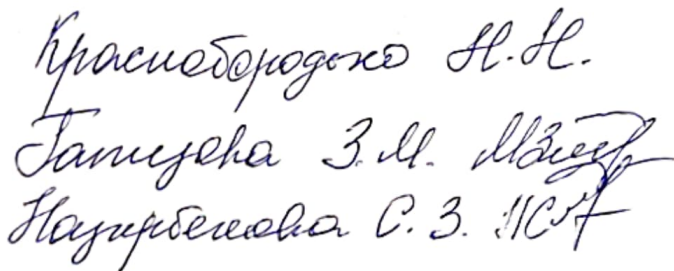 Краснобородько Н.Н.
Гатизова З.М.
Назирбекова С.З.